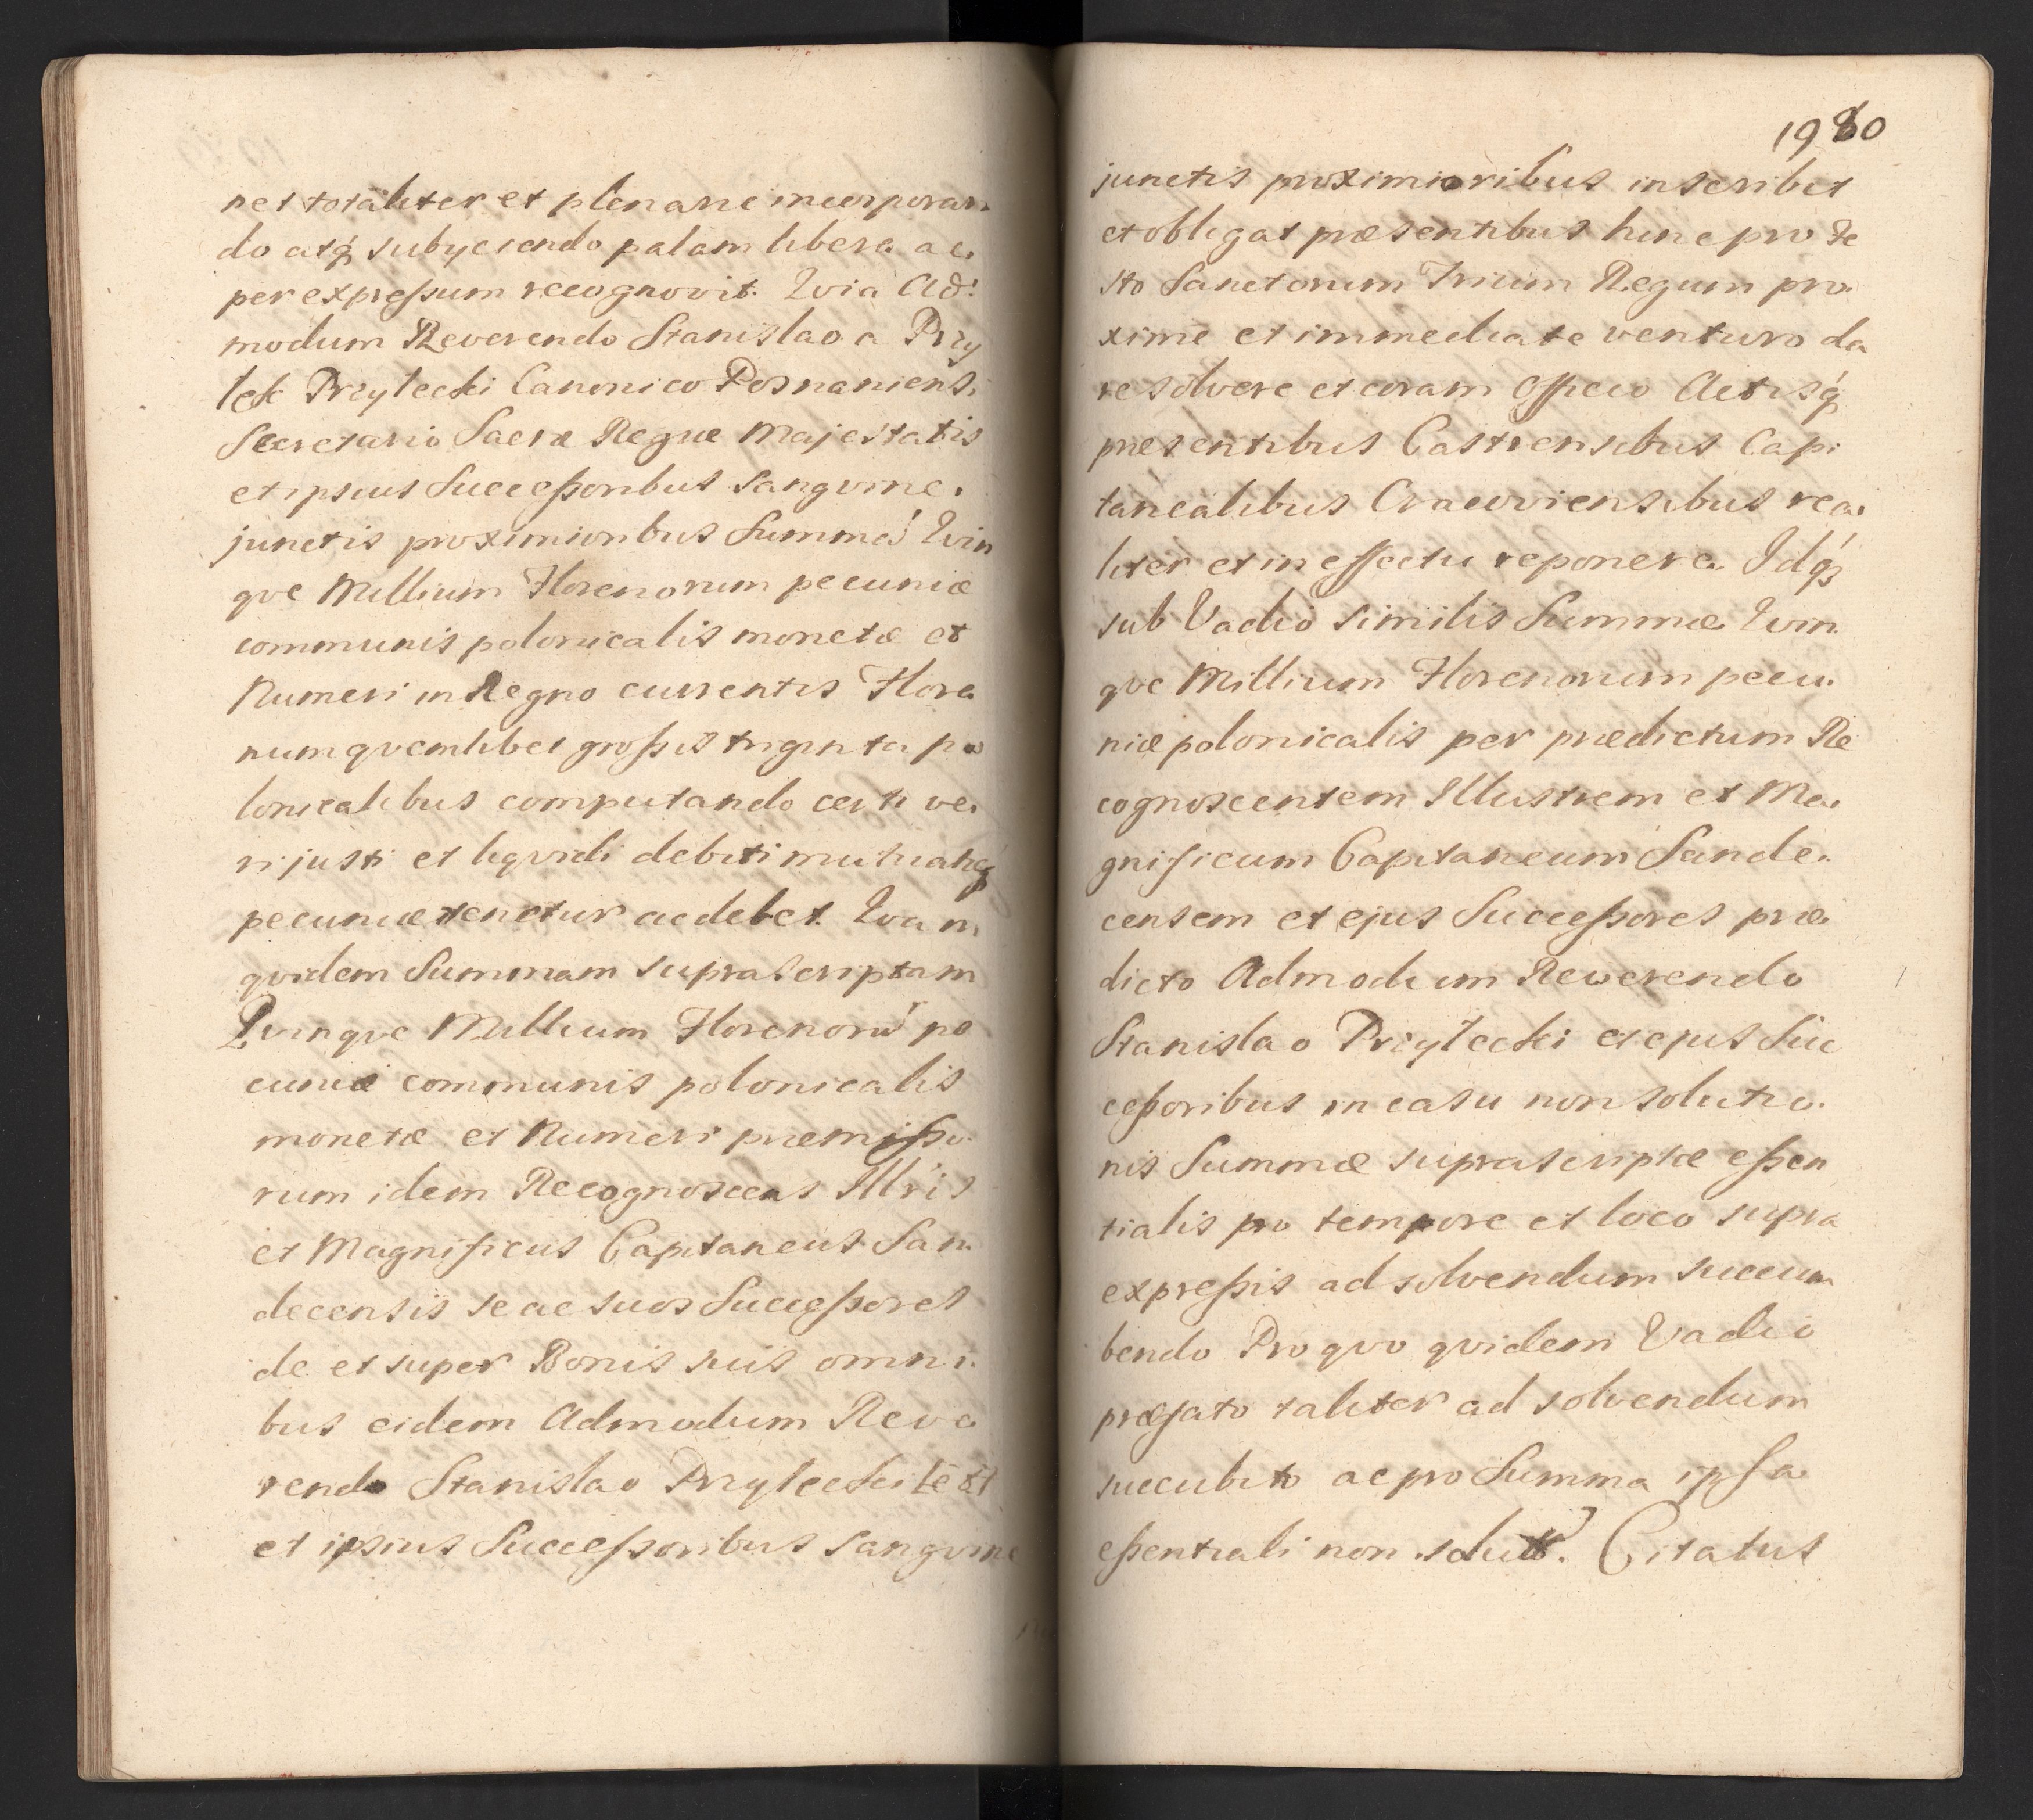 net totaliter et plenarie incorporan
do atq́ꝫ subyciendo palam libere ac
per expreſsum recognovit. Qvia Ad:
modum Reverendo Stanislao a Przy
łęk Przyłecki Canonico Posnaniensi
Secretario Sacræ Regiæ Majestatis
et ipsius Succeſsoribus Sangvine.
junctis proximioribus Summā Qvin
qve Millium Florenorum pecuniæ
communis polonicalis monetæ et
Numeri in Regno currentis Flore
num qvemlibet groſsis triginta po
lonicalibus computando certi ve.
ri justi et liqvidi debiti mutuatæq́ꝫ
pecuniæ tenetur ac debet. Qvam
qvidem Summam suprascriptam
Qvinqve Millium Florenorū pe
cuniæ communis polonicalis
monetæ et Numeri præmiſso.
rum idem Recognoscens Illr̄is
et Magnificus Capitaneus San.
decensis se ac suos Succeſsores
de et super Bonis suis omni.
bus eidem Admodum Reve
rendo Stanislao Przyłecki
et ipsius Succeſsoribus Sangvine
1980
junctis proximioribus inscribit
et obligat præsentibus hinc pro Fe
sto Sanctorum Trium Regum pro.
xime et immediate venturo da
re solvere et coram Officio Actisq́ꝫ
præsentibus Castrensibus Capi
tanealibus Cracoviensibus rea.
liter et in effectu reponere. Idq́ꝫ
sub Vadio similis Summæ Qvin
qve Millium Florenorum pecu.
niæ polonicalis per prædictum Re
cognoscentem Illustrem et Ma.
gnificum Capitaneum Sande.
censem et ejus Succeſsores præ
dicto Admodum Rewerendo
Stanislao Przyłecki et ejus Suc
ceſsoribus in casu non solutio.
nis Summæ suprascriptæ eſsen
tialis pro tempore et loco supra
expreſsis ad solvendum succum
bendo Pro qvo qvidem Vadio
præfato taliter ad solvendum
succubito ac pro Summa ipsa
eſsentiali non solutis. Citatus